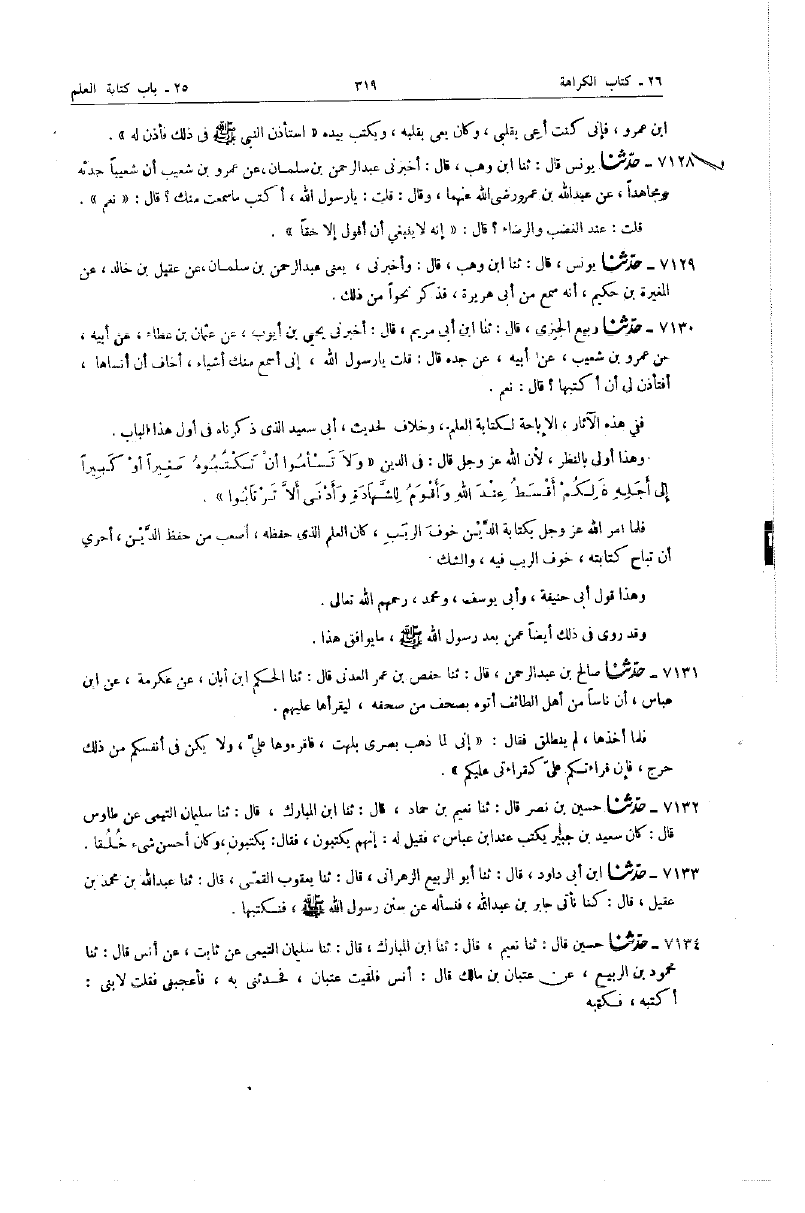 ٢٦ ـ كتاب الكراهة ٣١٩ ٢٥ ـ باب كتابة العلم
ابن عمرو ، فإنى كنت أعى بقلبى ، وكان يعى بقلبه ، ويكتب بيده « استأذن النبى ﷺ فى ذلك فأذن له » .
٧١٢٨ ـ حدّثنا يونس قال : ثنا ابن وهب ، قال : أخبرنى عبدالرحمن بن سلمان ، عن عمرو بن شعيب أن شعيباً حدثه
ومجاهداً ، عن عبدالله بن عمرو رضى الله عنهما ، وقال : قلت : يارسول الله ، أكتب ماسمعت منك ؟ قال : « نعم » .
قلت : عند الغضب والرضاء ؟ قال : « إنه لاينبغى أن أقولى إلا حقاً » .
٧١٢٩ ـ حدّثنا يونس ، قال : ثنا ابن وهب ، قال : وأخبرنى ، يعنى عبدالرحمن بن سلمان ، عن عقيل بن خالد ، عن
المغيرة بن حكيم ، أنه سمع من أبى هريرة ، فذكر نحواً من ذلك .
٧١٣٠ ـ حدّثنا ربيع الجيزى ، قال : ثنا ابن أبى مريم ، قال : أخبرنى يحيى بن أيوب ، عن عثمان بن عطاء ، عن أبيه ،
عن عمرو بن شعيب ، عن أبيه ، عن جده قال : قلت يارسول الله ، إنى أسمع منك أشياء ، أخاف أن أنساها ،
أفتأذن لى أن أكتبها ؟ قال : نعم .
ففى هذه الآثار ، الإباحة لكتابة العلم ، وخلاف لحديث ، أبى سعيد الذى ذكرناه فى أول هذا الباب .
وهذا أولى بالنظر ، لأن الله عز وجل قال : فى الدين « وَلاَ تَسْأَمُوا أنْ تَكْتُبُوهُ صَغِيراً أوْ كَبِيراً
إلى أجَلِهِ ذَلِكُمْ أقْسَطُ عِنْدَ اللهِ وَأقْوَمُ لِلشَّهَادَةِ وَأدْنَى ألاَّ تَرْتَابُوا » .
فلما أمر الله عز وجل بكتابة الدَّيْن خوفَ الريَب ، كان العلم الذى حفظه ، أصعب من حفظ الدَّيْن ، أحرى
أن تباح كتابته ، خوف الريب فيه ، والشك .
وهذا قول أبى حنيفة ، وأبى يوسف ، ومحمد ، رحمهم الله تعالى .
وقد روى فى ذلك أيضاً عمن بعد رسول الله ﷺ ، مايوافق هذا .
٧١٣١ ـ حدّثنا صالح بن عبدالرحمن ، قال : ثنا حفص بن عمر العدنى قال : ثنا الحكم ابن أبان ، عن عكرمة ، عن ابن
عباس ، أن ناساً من أهل الطائف أتوه بصحف من صحفه ، ليقرأها عليهم .
فلما أخذها ، لم ينطلق فقال : « إنى لما ذهب بصرى بلهت ، فاقرءوها علىّ ، ولا يكن فى أنفسكم من ذلك
حرج ، فإن قراءتكم علىّ كقراءتى عليكم » .
٧١٣٢ ـ حدّثنا حسين بن نصر قال : ثنا نعيم بن حماد ، قال : ثنا ابن المبارك ، قال : ثنا سليمان التيمى عن طاوس
قال : كان سعيد بن جبير يكتب عند ابن عباس ، فقيل له : إنهم يكتبون ، فقال : يكتبون ، وكان أحسن شىء خُلُقا .
٧١٣٣ ـ حدّثنا ابن أبى داود ، قال : ثنا أبو الربيع الزهرانى ، قال : ثنا يعقوب القمّى ، قال : ثنا عبدالله بن محمد بن
عقيل ، قال : كنا نأتى جابر بن عبدالله ، فنسأله عن سنن رسول الله ﷺ ، فنكتبها .
٧١٣٤ ـ حدّثنا حسين قال : ثنا نعيم ، قال : ثنا ابن المبارك ، قال : ثنا سليمان التيمى عن ثابت ، عن أنس قال : ثنا
محمود بن الربيع ، عن عتبان بن مالك قال : أنس فلقيت عتبان ، فحدثنى به ، فأعجبنى فقلت لابنى :
أكتبه ، فكتبه